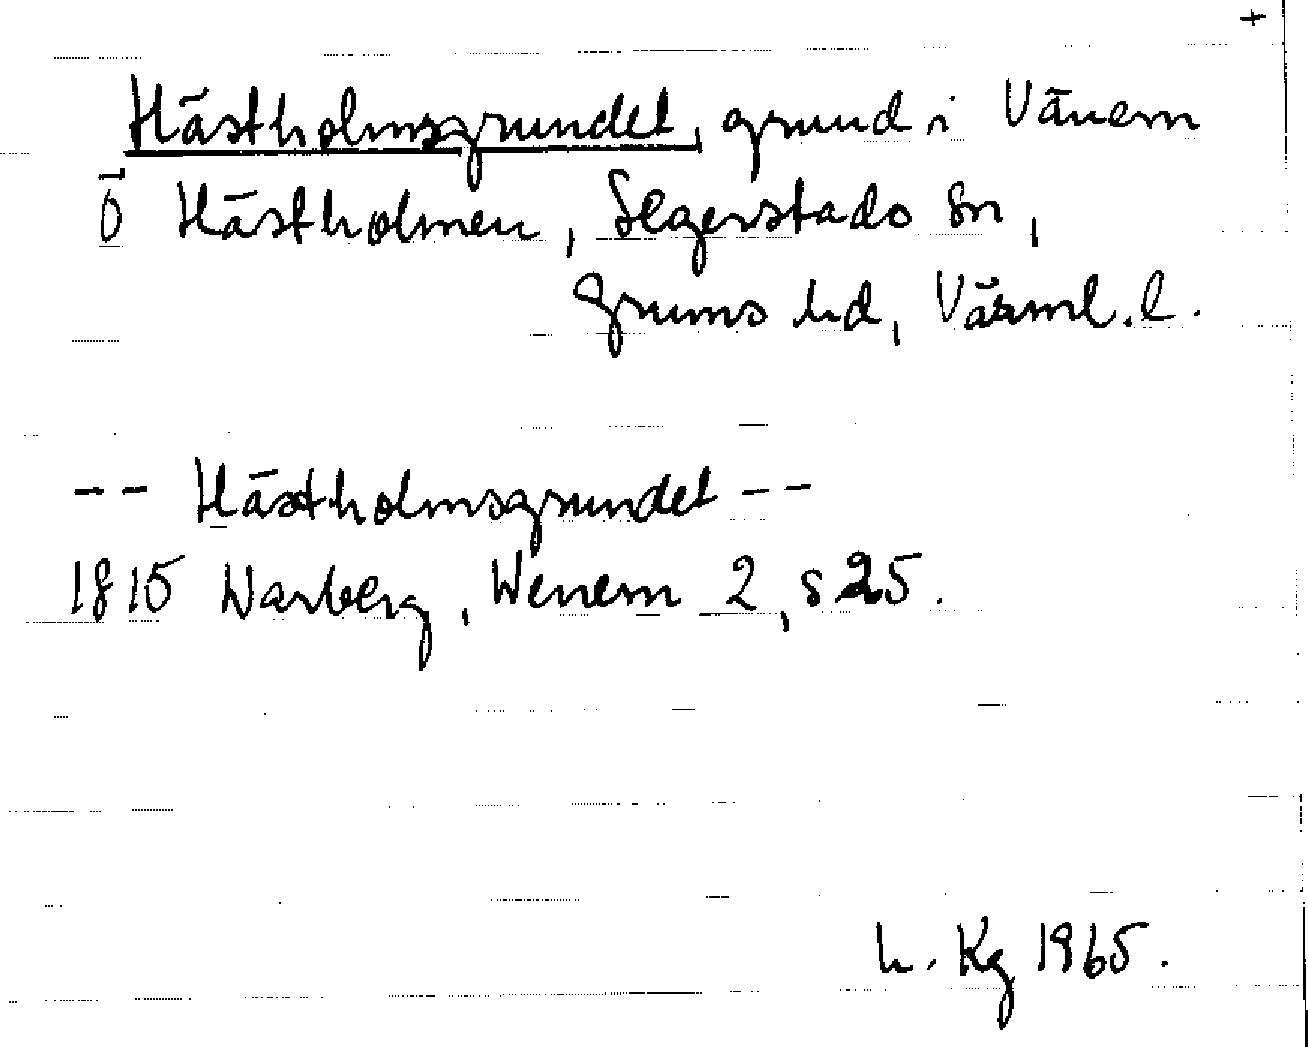 +
Hästholmsgrundet, grund i Vänern
Ö Hästholmen, Segerstads sn,
Grums hd, Värml. l.
-- Hästholmsgrundet --
1815 Warberg, Wenern 2, s 25.
h. Kg 1965.